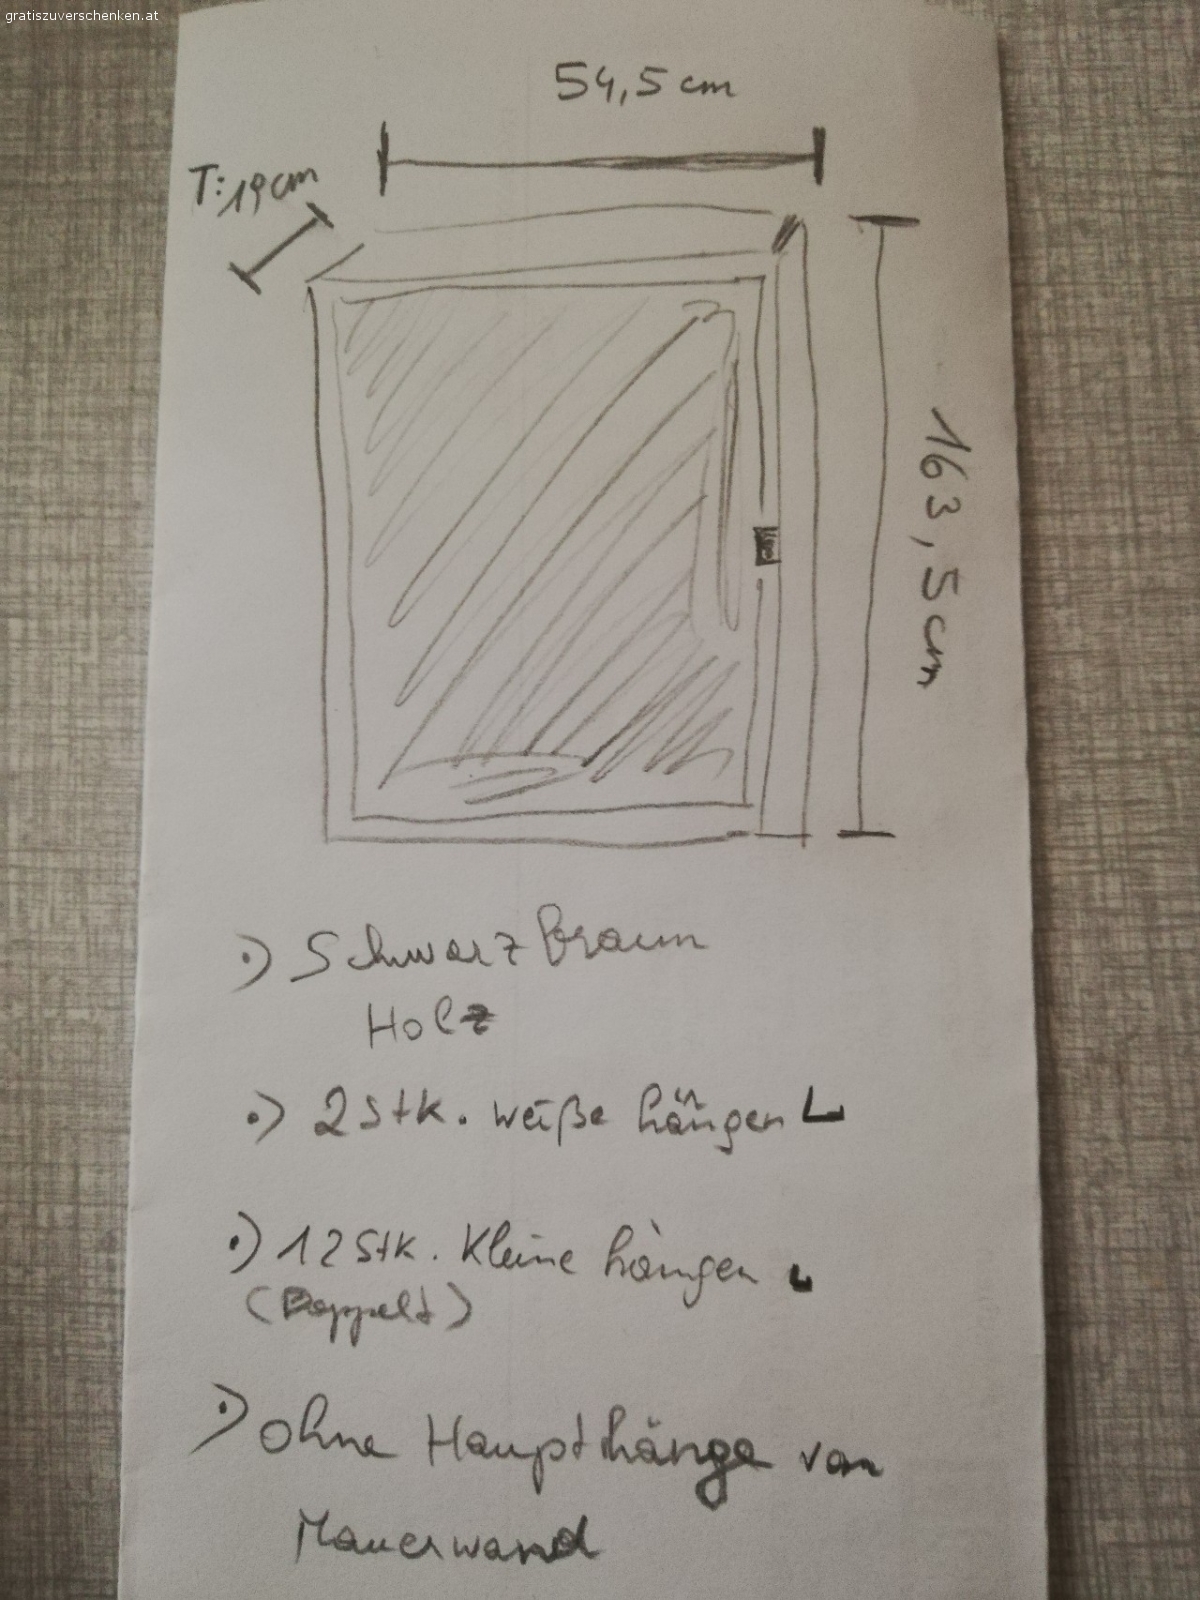 gratiszuverschenken.at
54,5 cm
T: 19cm
163,5 cm
·) Schwarzbraun
Holz
·) 2 Stk. weiße hängen
·) 12 Stk. Kleine hängen
(Doppelt)
·) ohne Haupthänge von
Mauerwand